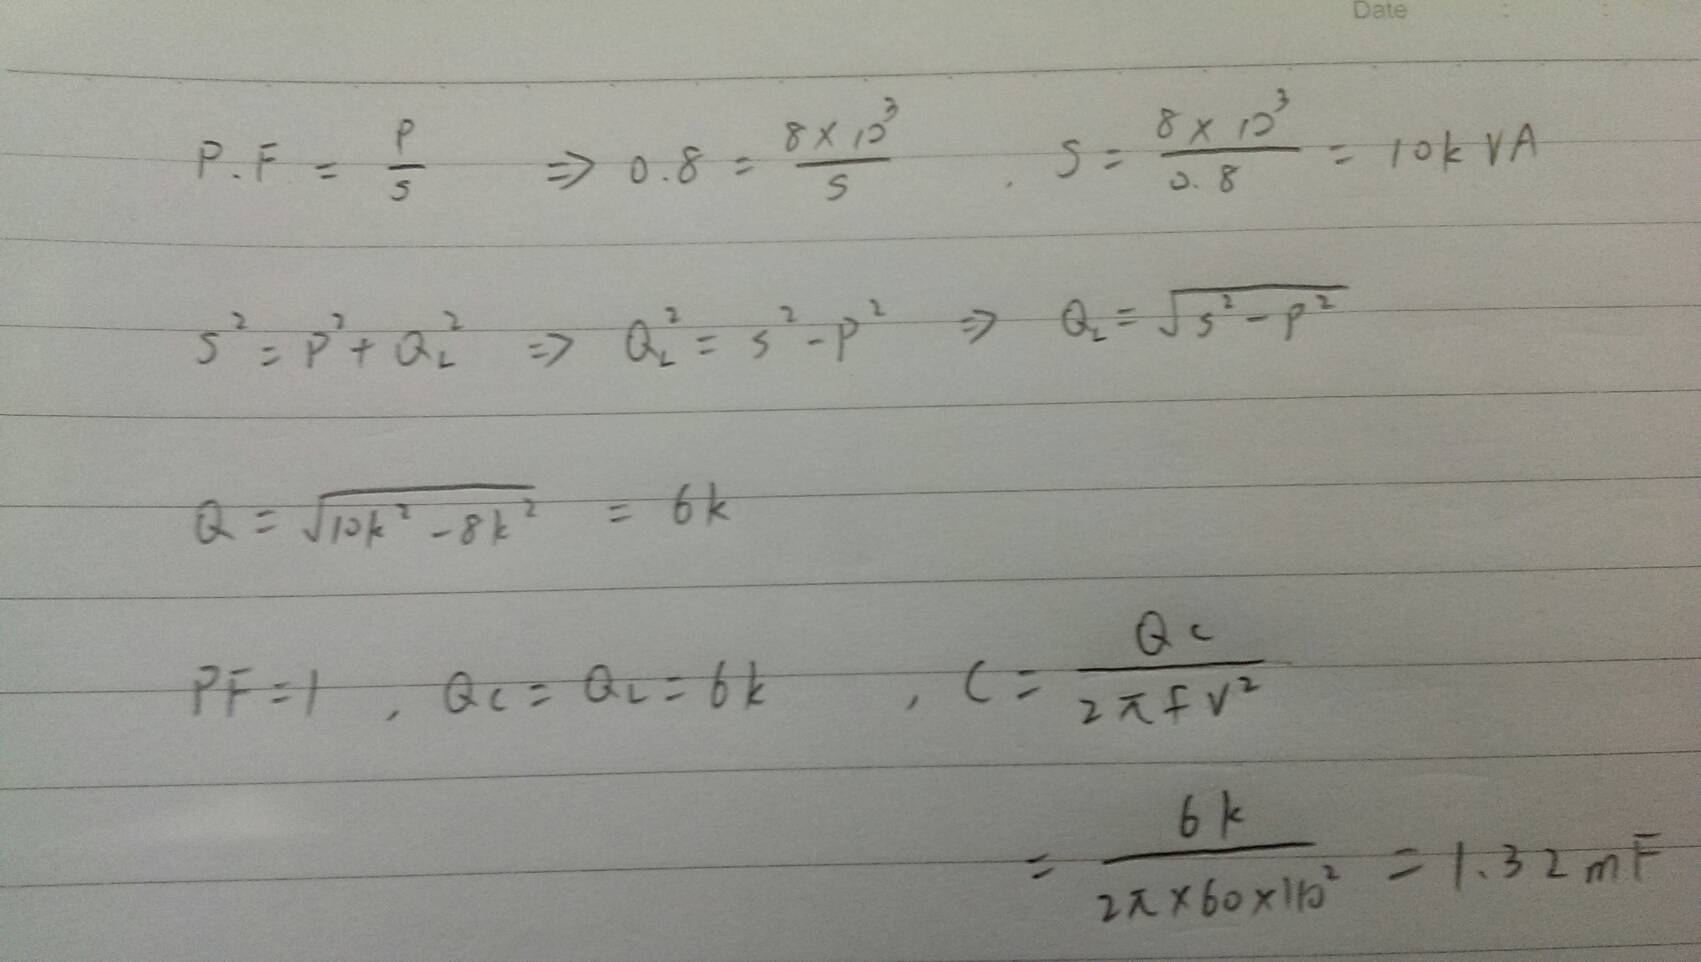 Date : :
P.F = P/S ⇒ 0.8 = 8×10³/S , S = 8×10³/0.8 = 10k VA
S² = P² + Q_L² ⇒ Q_L² = S² - P² ⇒ Q_L = √(S² - P²)
Q = √(10k² - 8k²) = 6k
PF = 1 , Qc = Q_L = 6k , C = Qc/2πfV²
= 6k/2π×60×110² = 1.32 mF